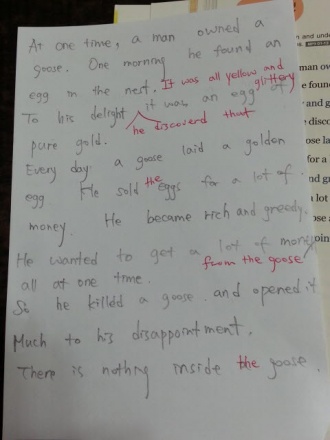 At one time, a man owned a
goose. One morning he found an
egg in the nest. It was all yellow and
glittery
To his delight it was an egg of
he discoverd that
pure gold.
Every day a goose laid a golden
egg He sold the eggs for a lot of
money. He became rich and greedy.
He wanted to get a lot of money
from the goose
all at one time.
So he killed a goose and opened it
Much to his disappointment.
There is nothing inside the goose.